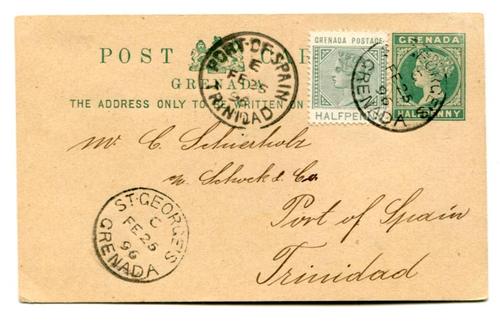 POST CARD
GRENADA
THE ADDRESS ONLY TO BE WRITTEN ON
GRENADA POSTAGE
HALFPENNY
GRENADA
HALFPENNY
PORT-OF-SPAIN
E
FE 26
96
TRINIDAD
ST. GEORGE'S
FE 25
96
GRENADA
Mr C. Schierholz
Port of Spain
Trinidad
ST. GEORGE'S
C
FE 25
96
GRENADA